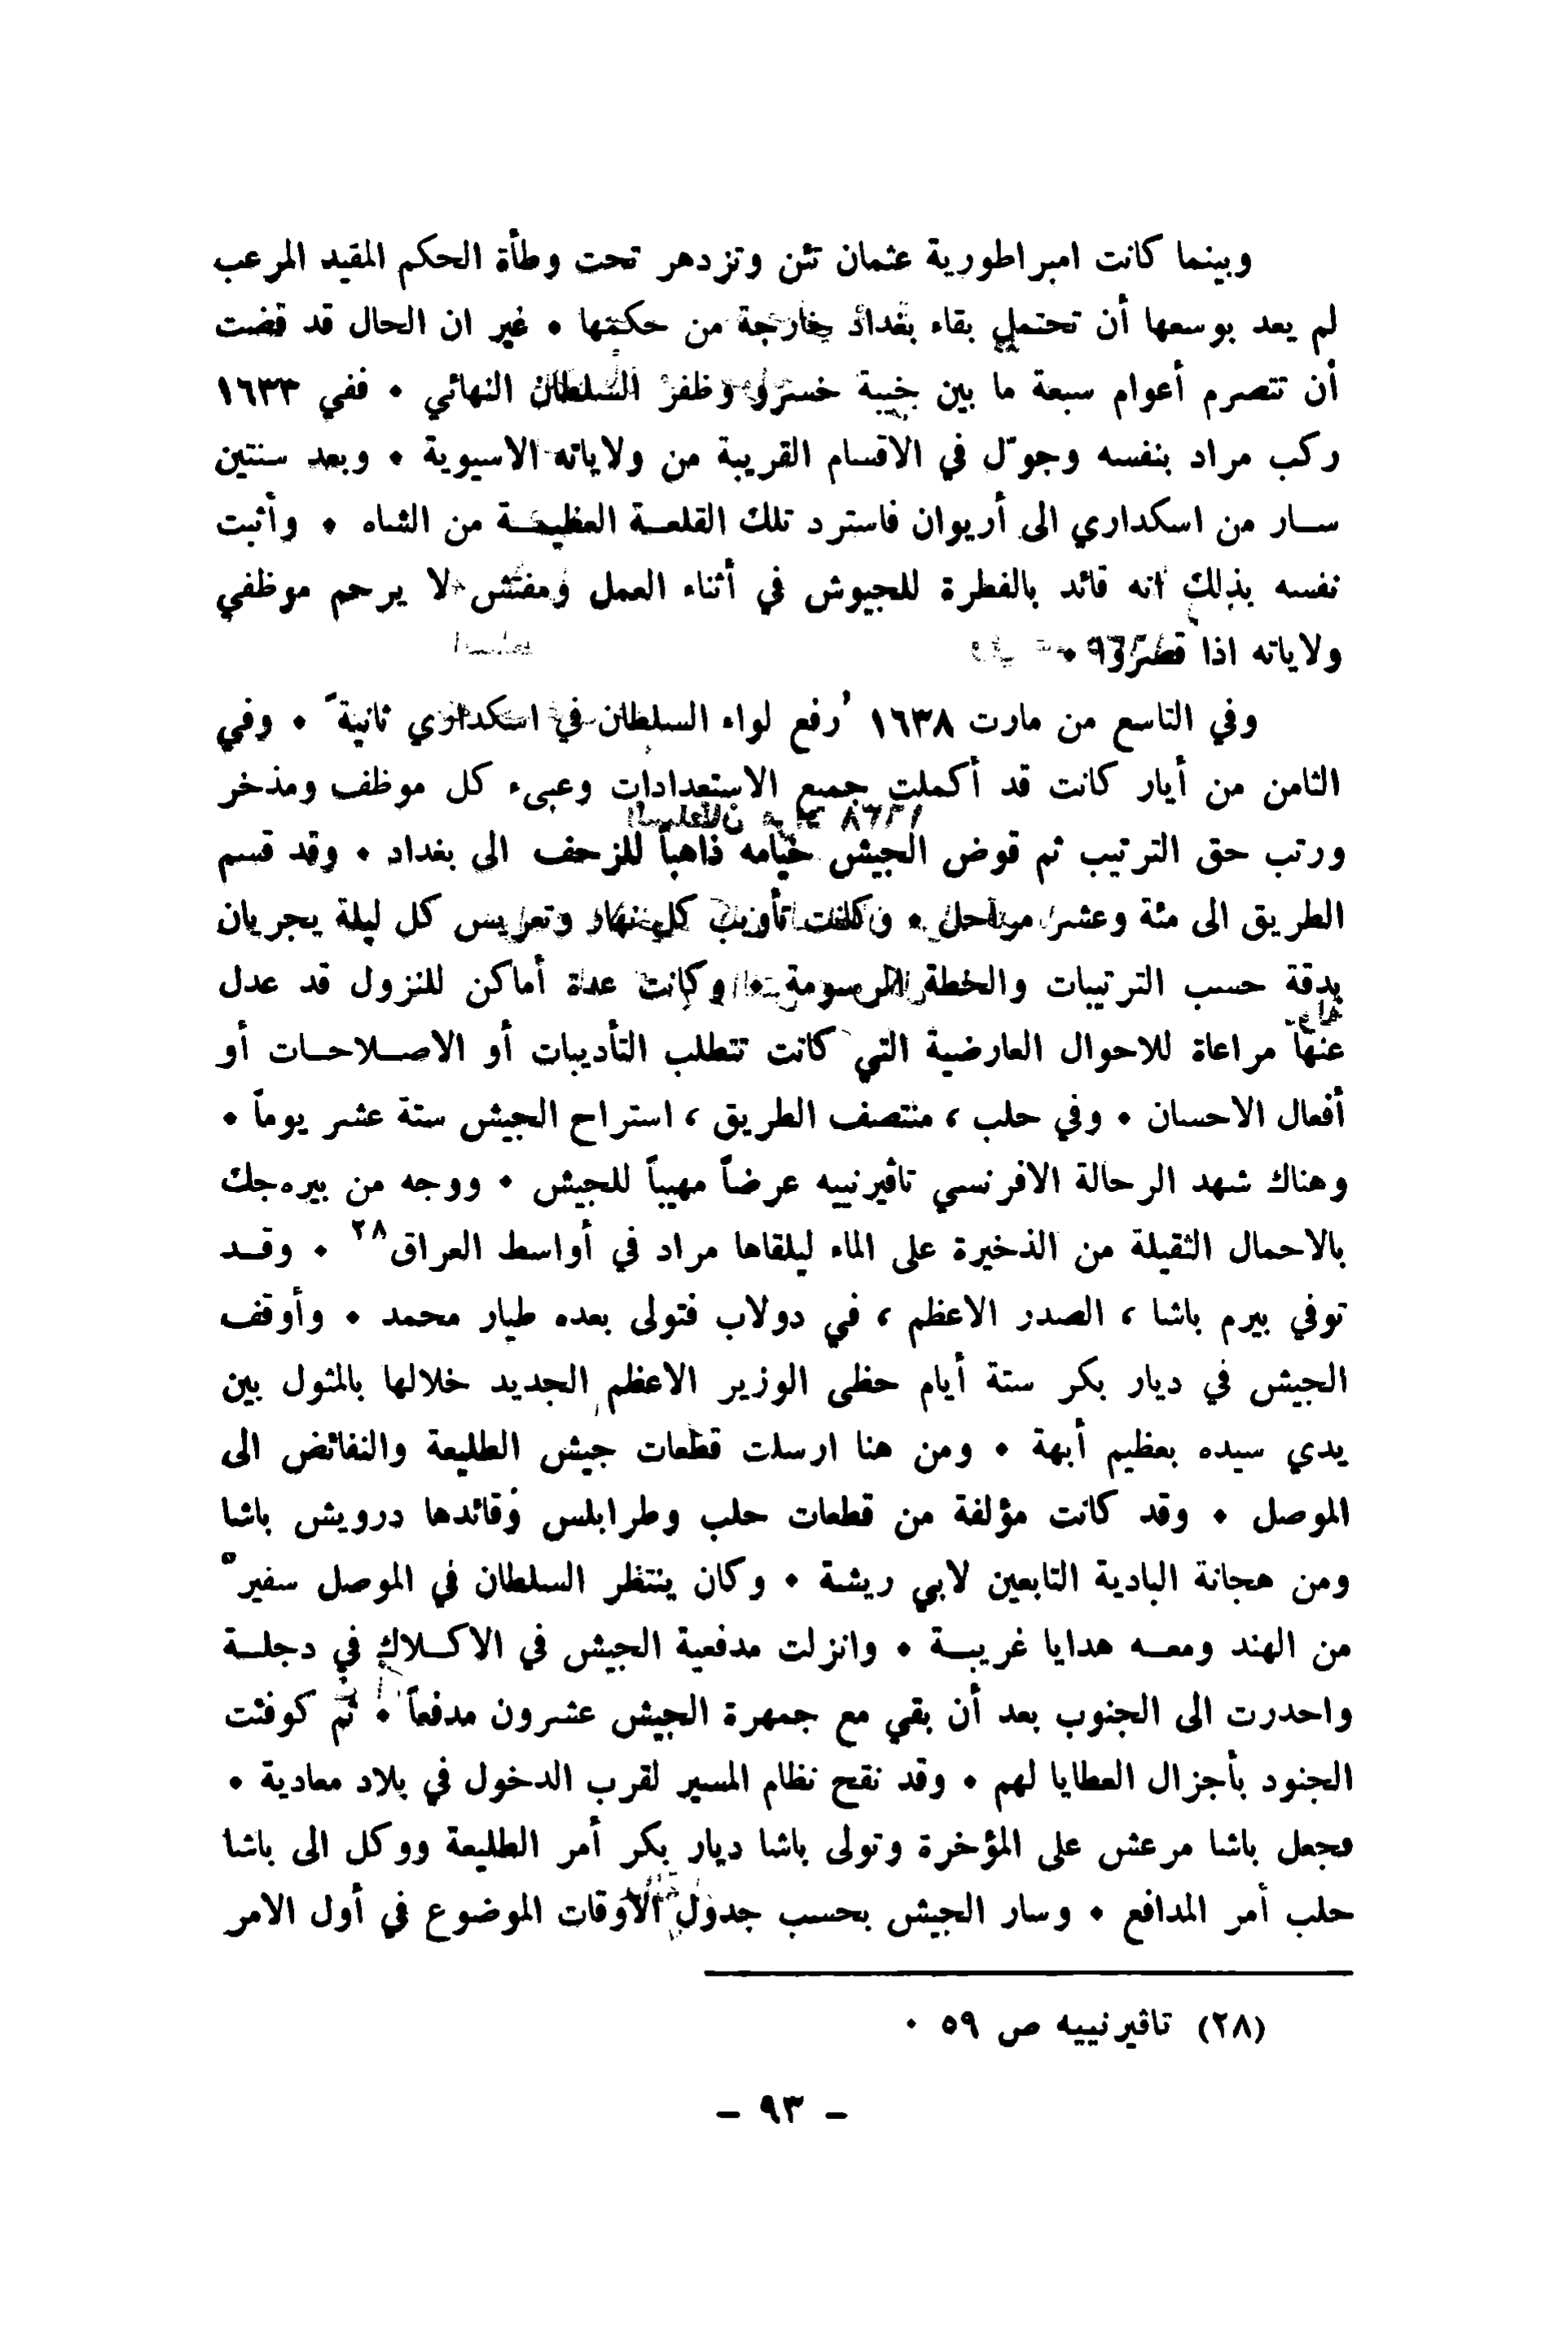 وبينما كانت امبراطورية عثمان تئن وتزدهر تحت وطأة الحكم المقيد المرعب
لم يعد بوسعها أن تحتمل بقاء بغداد خارجة من حكمها ٠ غير ان الحال قد قضت
أن تتصرم أعوام سبعة ما بين خيبة خسرو وظفر السلطان النهائي ٠ ففي ١٦٣٣
ركب مراد بنفسه وجوّل في الاقسام القريبة من ولاياته الاسيوية ٠ وبعد سنتين
سار من اسكداري الى أريوان فاسترد تلك القلعة العظيمة من الشاه ٠ وأثبت
نفسه بذلك انه قائد بالفطرة للجيوش في أثناء العمل ومفتش لا يرحم موظفي
ولاياته اذا قصروا ٠
وفي التاسع من مارت ١٦٣٨ رُفع لواء السلطان في اسكداري ثانيةً ٠ وفي
الثامن من أيار كانت قد أكملت جميع الاستعدادات وعبىء كل موظف ومذخر
ورتب حق الترتيب ثم قوض الجيش خيامه ذاهباً للزحف الى بغداد ٠ وقد قسم
الطريق الى مئة وعشر مراحل ٠ وكانت تأويب كل نهار وتعريس كل ليلة يجريان
بدقة حسب الترتيبات والخطة المرسومة ٠ وكانت عدة أماكن للنزول قد عدل
عنها مراعاة للاحوال العارضية التي كانت تتطلب التأديبات أو الاصلاحات أو
أفعال الاحسان ٠ وفي حلب ، منتصف الطريق ، استراح الجيش ستة عشر يوماً ٠
وهناك شهد الرحالة الافرنسي تاڤيرنييه عرضاً مهيباً للجيش ٠ ووجه من بيره‌جك
بالاحمال الثقيلة من الذخيرة على الماء ليلقاها مراد في أواسط العراق٢٨ ٠ وقد
توفي بيرم باشا ، الصدر الاعظم ، في دولاب فتولى بعده طيار محمد ٠ وأوقف
الجيش في ديار بكر ستة أيام حظى الوزير الاعظم الجديد خلالها بالمثول بين
يدي سيده بعظيم أبهة ٠ ومن هنا ارسلت قطعات جيش الطليعة والنفائض الى
الموصل ٠ وقد كانت مؤلفة من قطعات حلب وطرابلس وقائدها درويش باشا
ومن هجانة البادية التابعين لابي ريشة ٠ وكان ينتظر السلطان في الموصل سفيرٌ
من الهند ومعه هدايا غريبة ٠ وانزلت مدفعية الجيش في الاكلاك في دجلة
واحدرت الى الجنوب بعد أن بقي مع جمهرة الجيش عشرون مدفعاً ٠ ثم كوفئت
الجنود بأجزال العطايا لهم ٠ وقد نقح نظام المسير لقرب الدخول في بلاد معادية ٠
فجعل باشا مرعش على المؤخرة وتولى باشا ديار بكر أمر الطليعة ووكل الى باشا
حلب أمر المدافع ٠ وسار الجيش بحسب جدول الاوقات الموضوع في أول الامر
(٢٨) تاڤيرنييه ص ٥٩ ٠
– ٩٣ –